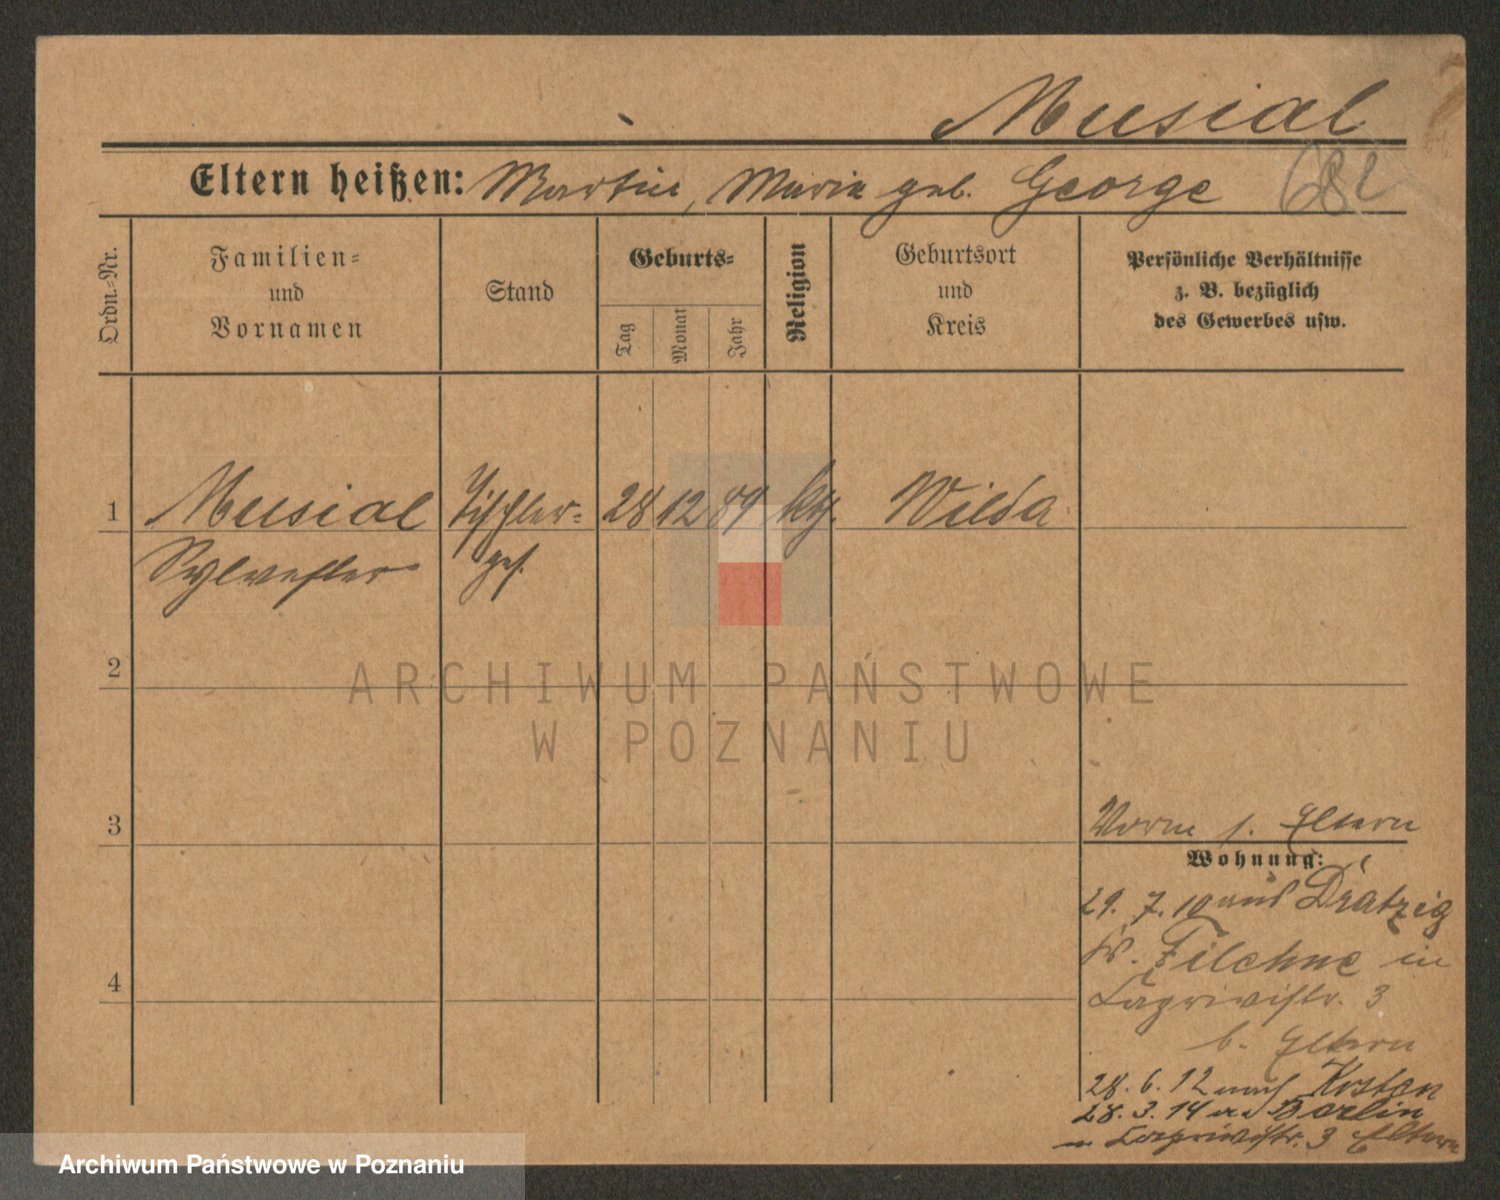 Musial
Eltern heißen: Martin, Maria geb. George
682
Ordn.-Nr.
Familien-
und
Vornamen
Stand
Geburts-
Tag
Monat
Jahr
Religion
Geburtsort
und
Kreis
Persönliche Verhältnisse
z. B. bezüglich
des Gewerbes usw.
1 Musial Tischler- 28 12 89 kth. Wilda
Sylvester ges.
2
ARCHIWUM PAŃSTWOWE
W POZNANIU
3
Vorne s. Eltern
Wohnung:
29. 7. 10 aus Dratzig
Kr. Filehne in
Caprivistr. 3
4
b. Eltern
28. 6. 12 nach Kosten
28. 3. 14 Berlin
n Caprivistr. 3 Eltern
Archiwum Państwowe w Poznaniu